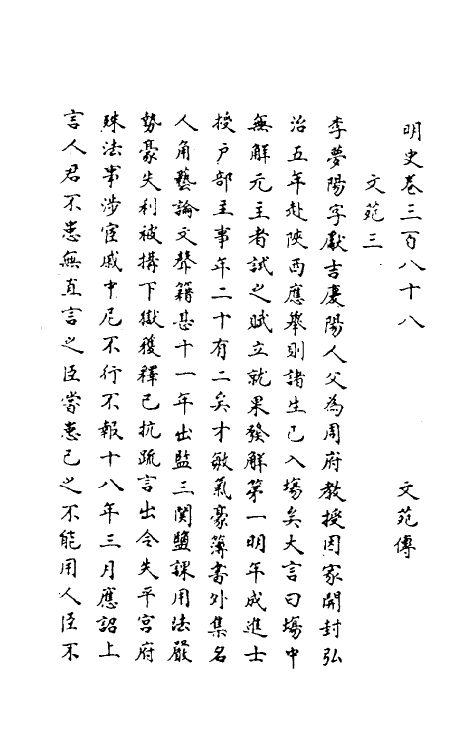 明史卷三百八十八
文苑傳
文苑三
李夢陽字獻吉慶陽人父為周府教授因家開封弘
治五年赴陝西應舉則諸生已入塲矣大言曰塲中
無解元主者試之賦立就果發解第一明年成進士
授戶部主事年二十有二矣才敏氣豪簿書外集名
人角藝論文聲籍甚十一年出監三関鹽課用法嚴
勢豪失利被搆下獄獲釋已抗疏言出令失平宮府
殊法事涉宦戚中尼不行不報十八年三月應詔上
言人君不患無直言之臣當患己之不能用人臣不